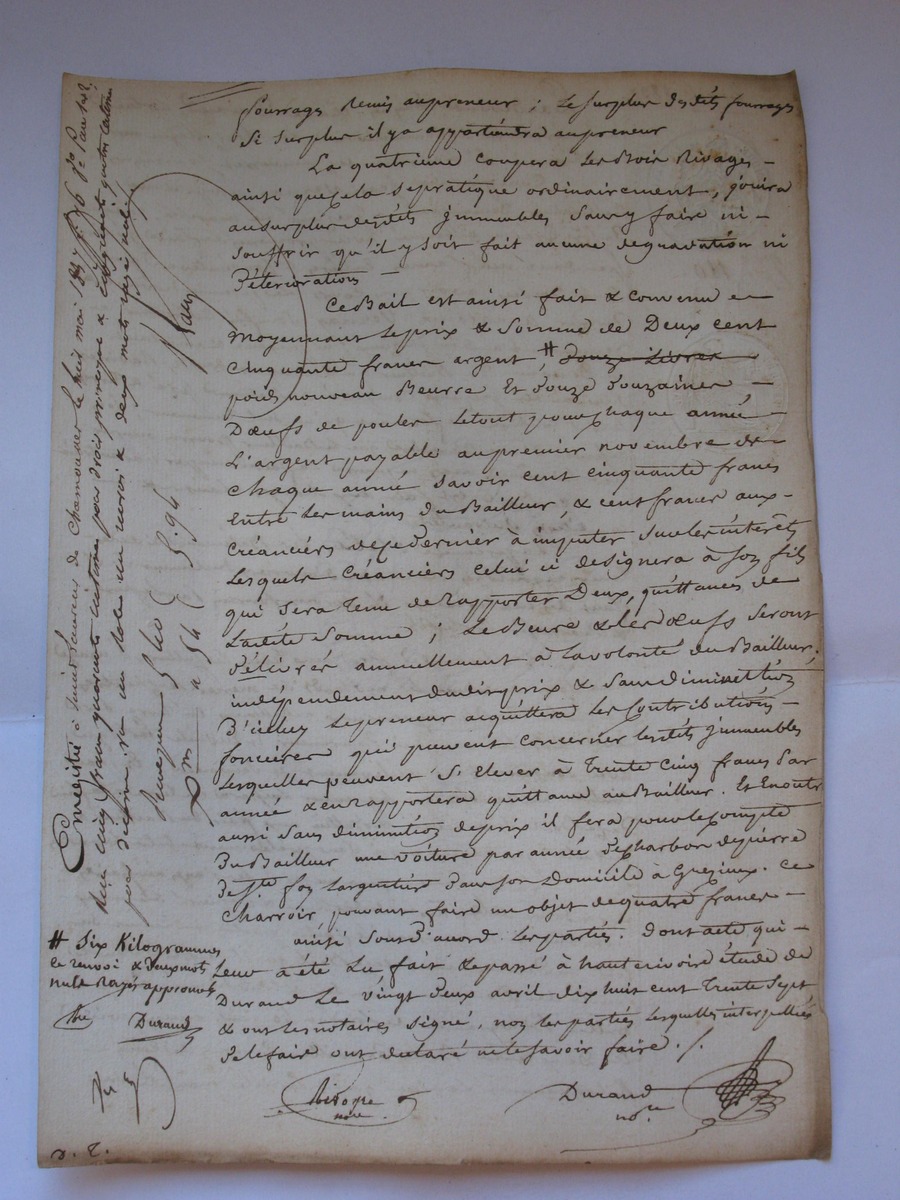 fourrages remis au preneur ; le surplus desdits fourrages
si surplus il y a appartiendra au preneur
La quatrieme coupera les bois Rivages
ainsi que cela se pratique ordinairement, jouira
au surplus desdits jmmeubles sans y faire ni
souffrir qu'il y soit fait aucune degradation ni
déterioration
Ce Bail est ainsi fait & convenu
moyennant le prix & somme de Deux cent
cinquante francs argent, # douze Livres
poids nouveau Beurre et douze douzaines
Doeufs de poules le tout pour chaque année
L'argent payable au premier novembre de
chaque année savoir cent cinquante francs
entre les mains du Bailleur, & cent francs aux
créanciers de ce dernier à imputer sur les intérêts
lesquels créanciers celui ci designera à son fils
qui sera tenu de rapporter Deux quittances de
ladite somme ; Le Beurre & les oeufs seront
délivrés annuellement à la volonté du Bailleur.
indépendemment dudit prix & sans diminution
D'icelluy le preneur acquittera les contributions
foncières qui peuvent concerner lesdits jmmeubles
lesquelles peuvent s'élever à trente cinq francs par
année & en rapportera quittance au Bailleur. Et En outre
aussi sans diminution de prix il fera pour le compte
Du Bailleur une voiture par année de charbon de pierre
De Ste foy Largentière dans son Domicile à Grézieux. Ce
charroir pouvant faire un objet de quatre francs
ainsi sont d'accord les parties. Dont acte qui
leur a été lu fait & passé à hauterivoire étude de
Durand le vingt deux avril dix huit cent trente sept
& ont les notaires signé, non les parties lesquelles interpellées
de le faire ont déclaré ne le savoir faire ./.
Durand
nore
nore
# six Kilogrammes
le renvoi & deux mots
nuls Rayés approuvés
Durand
Enregistré à St Laurent de Chamousset le huit mai 1837
Reçu cinq francs quarante centimes pour droit principal & cinquante quatre centimes
pour décime. un role un renvoi & deux mots rayés nuls.
5.40
54
5.94